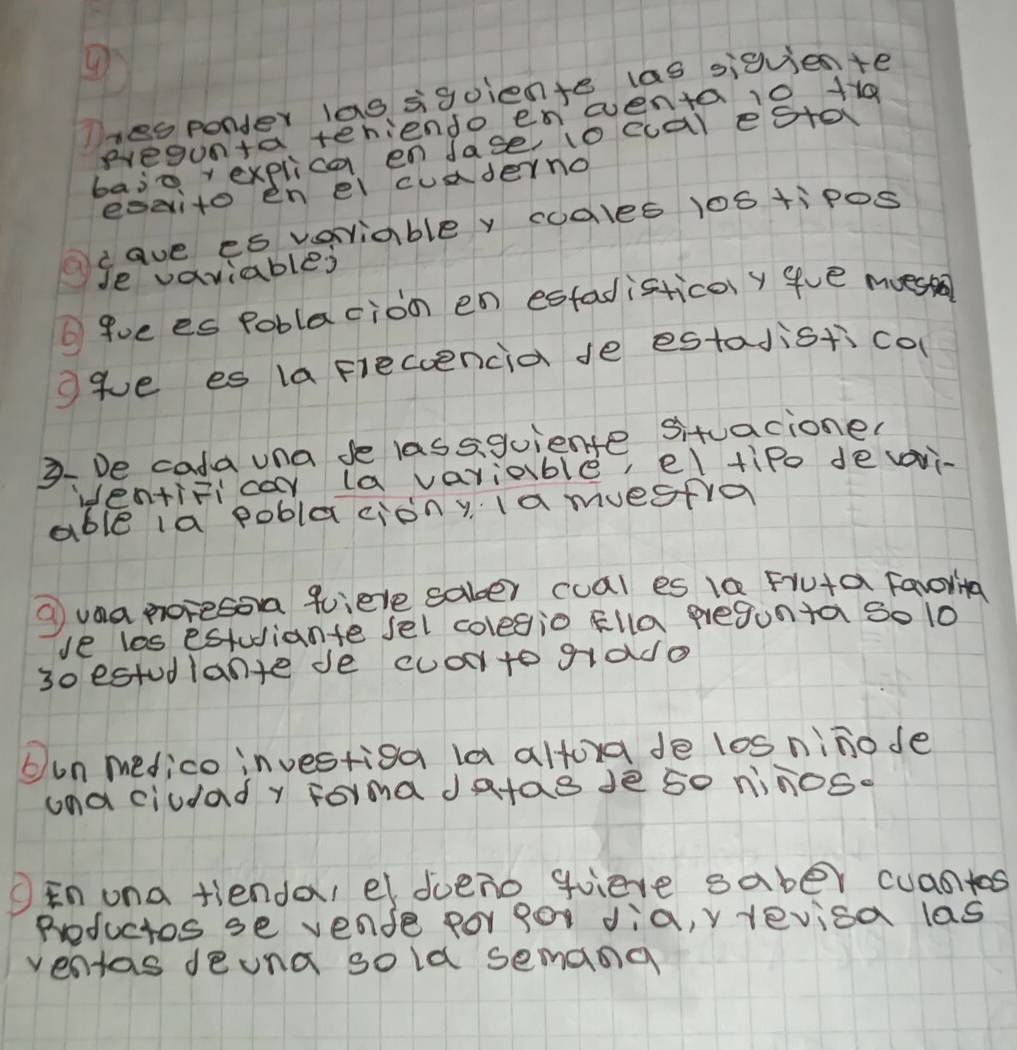 1) responder las siguiente las siguiente
pregunta teniendo en cuenta lo tra
bajo y explica en dase, lo cual esta
escrito en el cuaderno
a) ¿que es variable y cuales los tipos
de variable?
b) que es Poblacion en estadistica y que muestra
c) que es la Frecuencia de estadistica
3- De cada una de las siguiente situaciones
identificar la variable, el tipo de vari-
able la poblacion y la muestra
a) una profesora quiere saber cual es la Fruta Favorita
de los estudiante del colegio Ella pregunta solo
30 estudiante de cuarto grado
b) un medico investiga la altura de los niño de
una ciudad y Forma datas de 50 niños.
c) En una tienda, el dueño quiere saber cuantos
Productos se vende por por dia, y revisa las
ventas de una sola semana